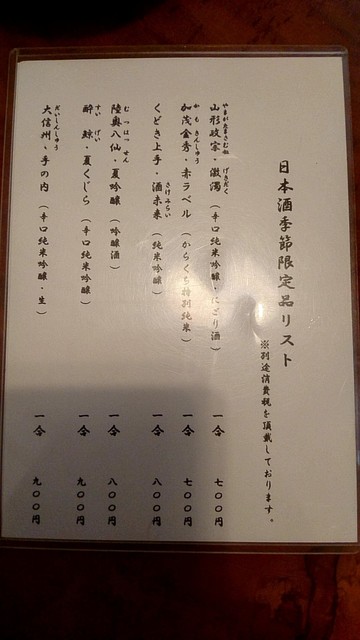 日本酒季節限定品リスト
※別途消費税を頂戴しております。
山形政宗・激濁（辛口純米吟醸・にごり酒） 一合 七〇〇円
やまがたまさむね げきだく
加茂金秀・赤ラベル（からくち特別純米） 一合 七〇〇円
かもきんしゅう
くどき上手・酒未来（純米吟醸） 一合 八〇〇円
さけみらい
陸奥八仙・夏吟醸（吟醸酒） 一合 八〇〇円
むつはっせん
酔鯨・夏くじら（辛口純米吟醸） 一合 九〇〇円
すいげい
大信州・手の内（辛口純米吟醸・生） 一合 九〇〇円
だいしんしゅう